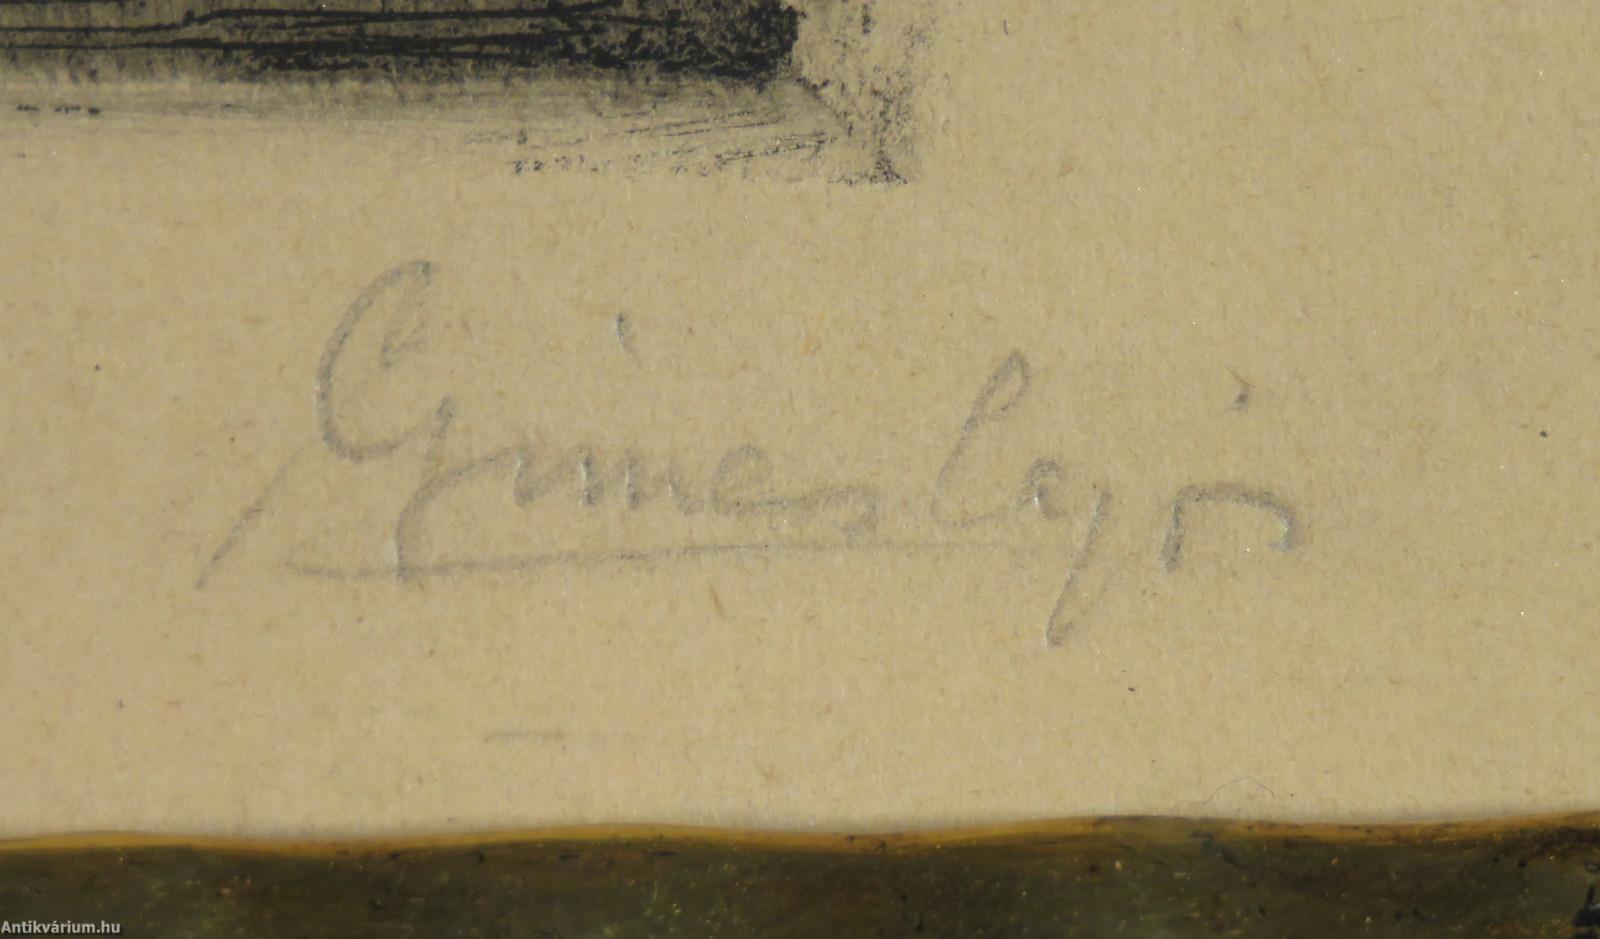 Gimes Lajos
Antikvárium.hu